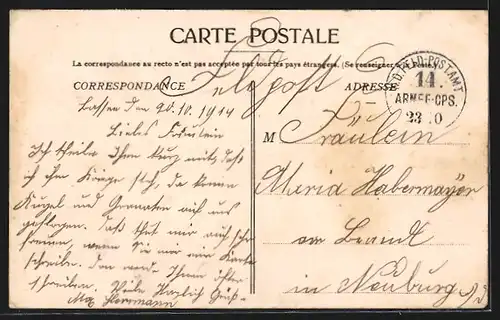 CARTE POSTALE
La correspondance au recto n'est pas acceptée par tous les pays étrangers. (Se renseigner à la Poste).
Feldpost
CORRESPONDANCE
ADRESSE
FELD-POSTAMT
14.
ARMEE-CPS.
23 10
den 20.10.1914
Liebes Fräulein
Ich theile Ihnen kurz mit, daß
ich im Kriege steh, da kommen
Kugel und Granaten auf uns
geflogen. Daß thut mir auch sehr
freuen, wenn Sie mir eine Karte
schreiben. Ihnen öfter
schreiben. Viele Herzlich Grüß-
Max Herrmann
M Fräulein
Maria Habermayer
in Neuburg a/D